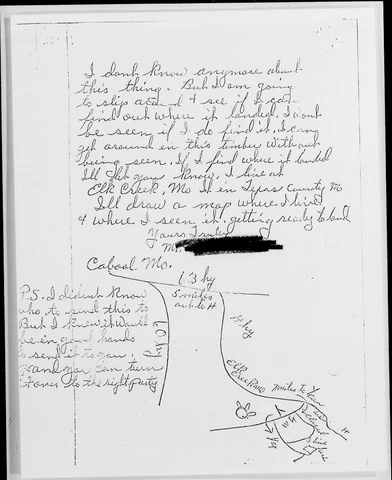 I dont know anymore about
this thing. But I am going
to slip around & see if I can
find out where it landed. I wont
be seen if I do find it. I can
get around in this timber without
being seen. If I find where it landed
Ill let you know. I live at
Elk Creek, Mo It in Texas County Mo
Ill draw a map where I live
& where I seen it, getting ready to land
Yours Truley
Cabool, Mo.
63 hy
5 miles
out to H
P.S. I didnt know
who to send this to
But I knew it would
be in good hands
to send it to you,
and you can turn
it over to the right party
60 hy
hy
Elk
Creek
miles To
H